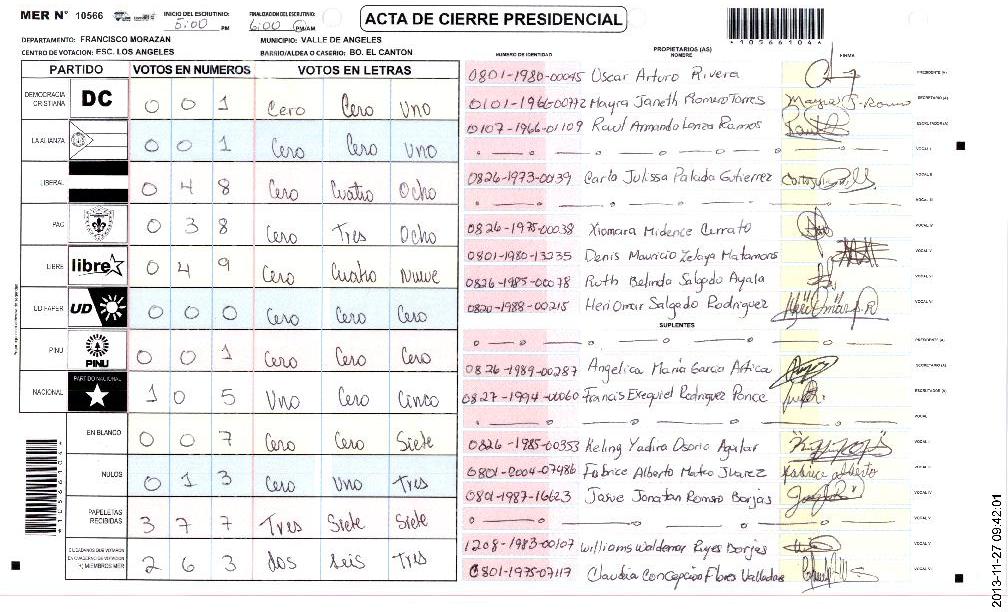 MER N° 10566 INICIO DEL ESCRUTINIO: 5:00 PM FINALIZACION DEL ESCRUTINIO: 6:00 PM/AM ACTA DE CIERRE PRESIDENCIAL
DEPARTAMENTO: FRANCISCO MORAZAN MUNICIPIO: VALLE DE ANGELES
CENTRO DE VOTACION: ESC. LOS ANGELES BARRIO/ALDEA O CASERIO: BO. EL CANTON
*10566104*
NUMERO DE IDENTIDAD PROPIETARIOS (AS) NOMBRE FIRMA
PARTIDO VOTOS EN NUMEROS VOTOS EN LETRAS
DEMOCRACIA CRISTIANA DC 0 0 1 Cero Cero Uno
LA ALIANZA 0 0 1 Cero Cero Uno
LIBERAL 0 4 8 Cero Cuatro Ocho
PAC 0 3 8 Cero Tres Ocho
LIBRE libre 0 4 9 Cero Cuatro Nueve
UD FAPER UD 0 0 0 Cero Cero Cero
PINU PINU 0 0 1 Cero Cero Cero
NACIONAL PARTIDO NACIONAL 1 0 5 Uno Cero Cinco
EN BLANCO 0 0 7 Cero Cero Siete
NULOS 0 1 3 Cero Uno Tres
PAPELETAS RECIBIDAS 3 7 7 Tres Siete Siete
CIUDADANOS QUE VOTARON EN CUADERNO DE VOTACION (+) MIEMBROS MER 2 6 3 dos seis Tres
0801-1980-00045 Oscar Arturo Rivera PRESIDENTE (A)
0101-1966-00772 Mayra Janeth Romero Torres SECRETARIO (A)
0107-1966-01109 Raul Armando Lanza Ramos ESCRUTADOR (A)
VOCAL I
0826-1973-00139 Carlo Julissa Palada Gutierrez VOCAL II
VOCAL III
0826-1975-00038 Xiomara Midence Cerrato VOCAL IV
0801-1980-13235 Denis Mauricio Zelaya Matamoros VOCAL V
0826-1985-00078 Ruth Belinda Salgado Ayala
0820-1988-00215 Heri Omar Salgado Rodriguez
SUPLENTES
PRESIDENTE (A)
0826-1989-00287 Angelica Maria Garcia Artica SECRETARIO (A)
0827-1994-00060 Francis Exequiel Rodriguez Ponce ESCRUTADOR (A)
VOCAL
0826-1985-00353 Keling Yadira Osorio Aguilar VOCAL
0801-0004-07486 Fabrice Alberto Mateo Juarez Fabrice Alberto
0801-1987-16623 Josue Jonatan Romero Borjas VOCAL IV
VOCAL V
1208-1983-00107 Williams Waldemar Reyes Borjas
0801-1975-07117 Claudia Concepcion Flores Valladares
*10566104*
2013-11-27 09:42:01